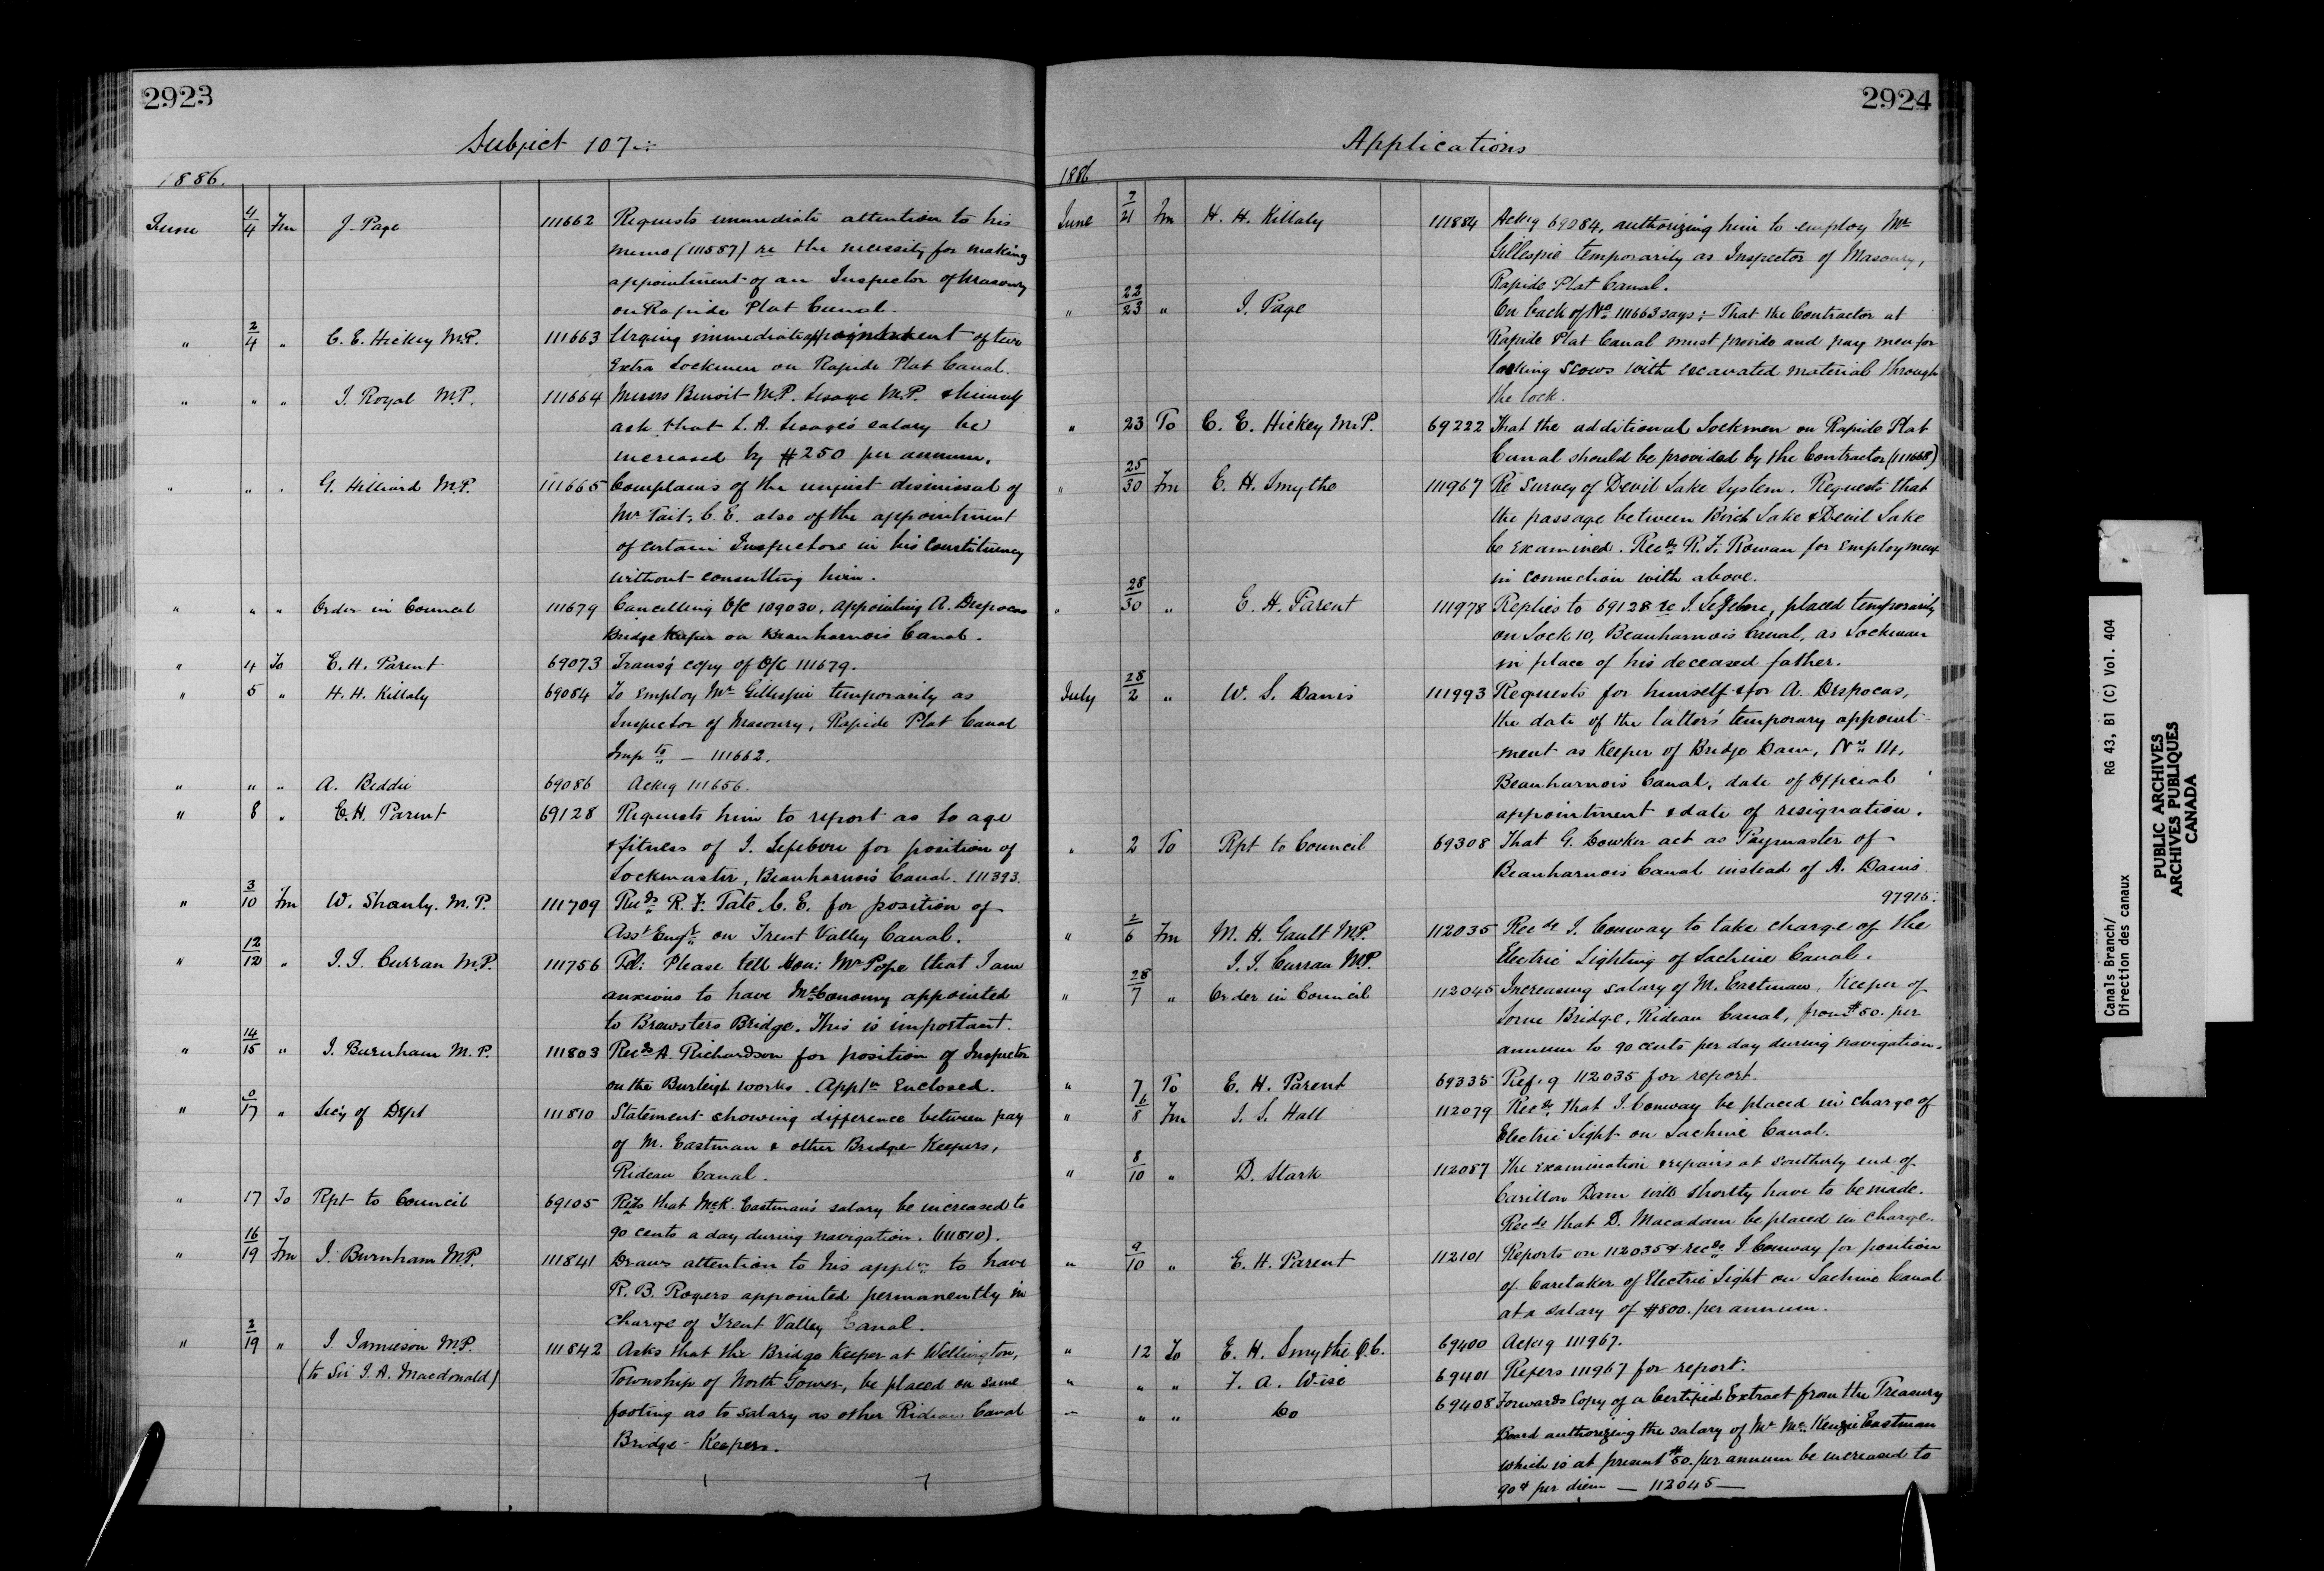 2923
Subject 107
1886.
June 4/4 Fm J. Page 111662 Requests immediate attention to his
memo (111587) re the necessity for making
appointment of an Inspector of Masonry
on Rapide Plat Canal.
" 2/4 " C. E. Hickey M.P. 111663 Urging immediate appointment of two
Extra Lockmen on Rapide Plat Canal.
" " " J. Royal M.P. 111664 Messrs Benoit M.P. Lesage M.P. & himself
ask that L. A. Lesage's salary be
increased by $250 per annum.
" " " G. Hilliard M.P. 111665 Complains of the unjust dismissal of
Mr Tait, C. E. also of the appointment
of certain Inspectors in his Constituency
without consulting him.
" " " Order in Council 111679 Cancelling O/C 109030, appointing A. Despocas
Bridge Keeper on Beauharnois Canal.
" 4 To E. H. Parent 69073 Trans'g copy of O/C 111679.
" 5 " H. H. Killaly 69084 To employ Mr Gillespie temporarily as
Inspector of Masonry, Rapide Plat Canal
Impts — 111662.
" " " A. Beddie 69086 Ackg 111656.
" 8 " E. H. Parent 69128 Requests him to report as to age
& fitness of J. Lefebvre for position of
Lockmaster, Beauharnois Canal. 111393.
" 3/10 Fm W. Shanly. M.P. 111709 Recds R. F. Tate, C. E. for position of
Asst Engr on Trent Valley Canal.
" 12/12 " J. J. Curran M.P. 111756 Tel: Please tell Hon: Mr Pope that I am
anxious to have McConomy appointed
to Brewsters Bridge. This is important.
" 14/15 " J. Burnham M.P. 111803 Recds A. Richardson for position of Inspector
on the Burleigh works. Appln Enclosed.
" 0/17 " Sec'y of Dept 111810 Statement showing difference between pay
of M. Eastman & other Bridge Keepers,
Rideau Canal.
" 17 To Rpt to Council 69105 Recds that McK. Eastman's salary be increased to
90 cents a day during navigation. (111810).
" 16/19 Fm J. Burnham M.P. 111841 Draws attention to his appln to have
R. B. Rogers appointed permanently in
charge of Trent Valley Canal.
" 2/19 " J. Jamieson M.P. 111842 Asks that the Bridge Keeper at Wellington,
(to Sir J. A. Macdonald) Township of North Gower, be placed on same
footing as to salary as other Rideau Canal
Bridge-Keepers.
2924
Applications
1886
June 7/21 Fm H. H. Killaly 111884 Ackg 69084, authorizing him to employ Mr
Gillespie temporarily as Inspector of Masonry,
Rapide Plat Canal.
" 22/23 " J. Page On back of No 111663 says:- That the Contractor at
Rapide Plat Canal must provide and pay men for
locking scows with excavated material through
the lock.
" 23 To C. E. Hickey M.P. 69222 That the additional Lockmen on Rapide Plat
Canal should be provided by the Contractor (111668)
" 25/30 Fm E. H. Smythe 111967 Re Survey of Devil Lake System. Requests that
the passage between Birch Lake & Devil Lake
be examined. Recds R. F. Rowan for employment
in connection with above.
" 28/30 " E. H. Parent 111978 Replies to 69128 re J. Lefebvre, placed temporarily
on Lock 10, Beauharnois Canal, as Lockman
in place of his deceased father.
July 28/2 " W. S. Danis 111993 Requests for himself & for A. Despocas,
the date of the latter's temporary appoint-
-ment as Keeper of Bridge Dam, No 14,
Beauharnois Canal, date of Official
appointment & date of resignation.
" 2 To Rpt to Council 69308 That G. Dowker act as Paymaster of
Beauharnois Canal instead of A. Danis
97915.
" 2/6 Fm M. H. Gault M.P. 112035 Recds J. Conway to take charge of the
J. J. Curran M.P. Electric Lighting of Lachine Canal.
" 28/7 " Order in Council 112045 Increasing salary of M. Eastman, Keeper of
Lorne Bridge, Rideau Canal, from $50. per
annum to 90 cents per day during navigation.
" 7 To E. H. Parent 69335 Ref.g 112035 for report.
" 6/8 Fm J. S. Hall 112079 Recds that J. Conway be placed in charge of
Electric Light on Lachine Canal.
" 8/10 " D. Stark 112087 The examination & repairs at Southerly end of
Carillon Dam will shortly have to be made.
Recds that D. Macadam be placed in charge.
" 9/10 " E. H. Parent 112101 Reports on 112035 & recds J. Conway for position
of Caretaker of Electric Light on Lachine Canal
at a salary of $800. per annum.
" 12 To E. H. Smythe Q.C. 69400 Ackg 111967.
" " " F. A. Wise 69401 Refers 111967 for report.
" " " Do 69408 Forwards Copy of a Certified Extract from the Treasury
Board authorizing the salary of Mr McKenzie Eastman
which is at present $50. per annum be increased to
90¢ per diem — 112045 —
Canals Branch/
Direction des canaux
RG 43, B1 (C) Vol. 404
PUBLIC ARCHIVES
ARCHIVES PUBLIQUES
CANADA